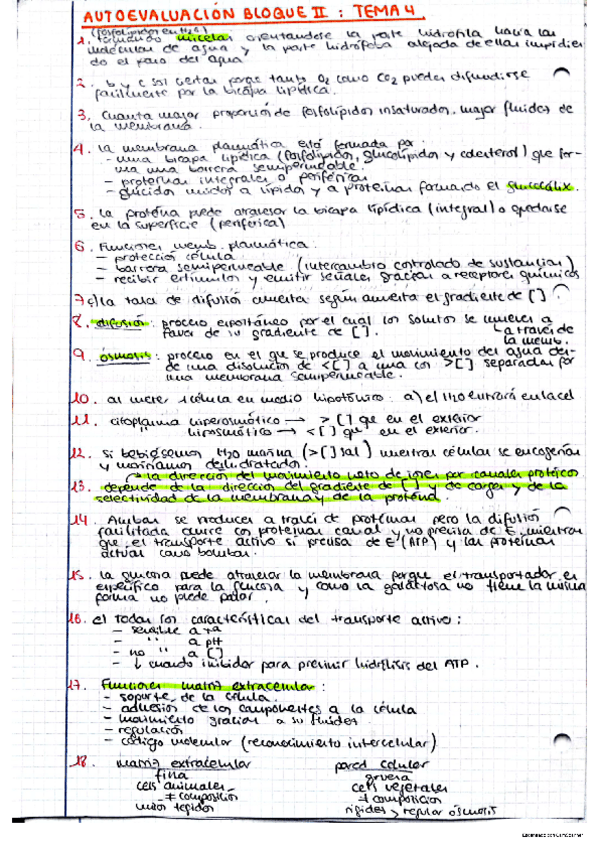 AUTOEVALUACIÓN BLOQUE II : TEMA 4.
(fosfolípidos en H₂O)
1. formando micelas orientandose la parte hidrófila hacia las
moléculas de agua y la parte hidrófoba alejada de ellas impidien
do el paso del agua
2. b y c son ciertas porque tanto O₂ como CO₂ pueden difundirse
facilmente por la bicapa lipídica.
3. Cuanta mayor proporción de fosfolípidos insaturados, mayor fluidez de
la membrana.
4. La membrana plasmática está formada por:
- una bicapa lipídica (fosfolípidos, glucolípidos y colesterol) que for-
ma una barrera semipermeable.
- proteínas integrales o periféricas
- glúcidos unidos a lípidos y a proteínas formando el glucocálix.
5. La proteína puede atravesar la bicapa lipídica (integral) o quedarse
en la superficie (periférica)
6. Funciones memb. plasmática:
- protección célula
- barrera semipermeable (intercambio controlado de sustancias)
- recibir estímulos y emitir señales gracias a receptores químicos
7. c) la tasa de difusión aumenta según aumenta el gradiente de [ ].
8. difusión: proceso espontáneo por el cual los solutos se mueven a
favor de su gradiente de [ ]. ↳ a través de
la memb.
9. ósmosis: proceso en el que se produce el movimiento del agua des-
de una disolución de <[ ] a una con >[ ] separadas por
una membrana semipermeable.
10. al meter 1 célula en medio hipotónico: a) el H₂O entrará en la cel
11. citoplasma hiperosmótico → > [ ] que en el exterior
hiposmótico → < [ ] que en el exterior.
12. si bebiésemos H₂O marina (>[ ] sal) nuestras células se encogerían
y moriríamos deshidratados.
13. ↱ la dirección del movimiento neto de iones por canales proteicos
depende de la dirección del gradiente de [ ] y de cargas y de la
selectividad de la membrana y de la proteína.
14. Ambas se producen a través de proteínas pero la difusión
facilitada ocurre con proteínas canal y no precisa de E, mientras
que el transporte activo si precisa de E (ATP) y las proteínas
actúan como bombas.
15. la glucosa puede atravesar la membrana porque el transportador es
específico para la glucosa y como la galactosa no tiene la misma
forma no puede pasar.
16. e) todas son características del transporte activo:
- sensible a Tª
- " " a pH
- no " a [ ]
- ↓ cuando inhibidor para prevenir hidrólisis del ATP.
17. Funciones matriz extracelular:
- soporte de la célula.
- adhesión de los componentes a la célula
- movimiento gracias a su fluidez
- regulación
- código molecular (reconocimiento intercelular)
18. matriz extracelular pared celular
fina gruesa
cels animales cels vegetales
≠ composición ≠ composición
unión tejidos rigidez y regular ósmosis